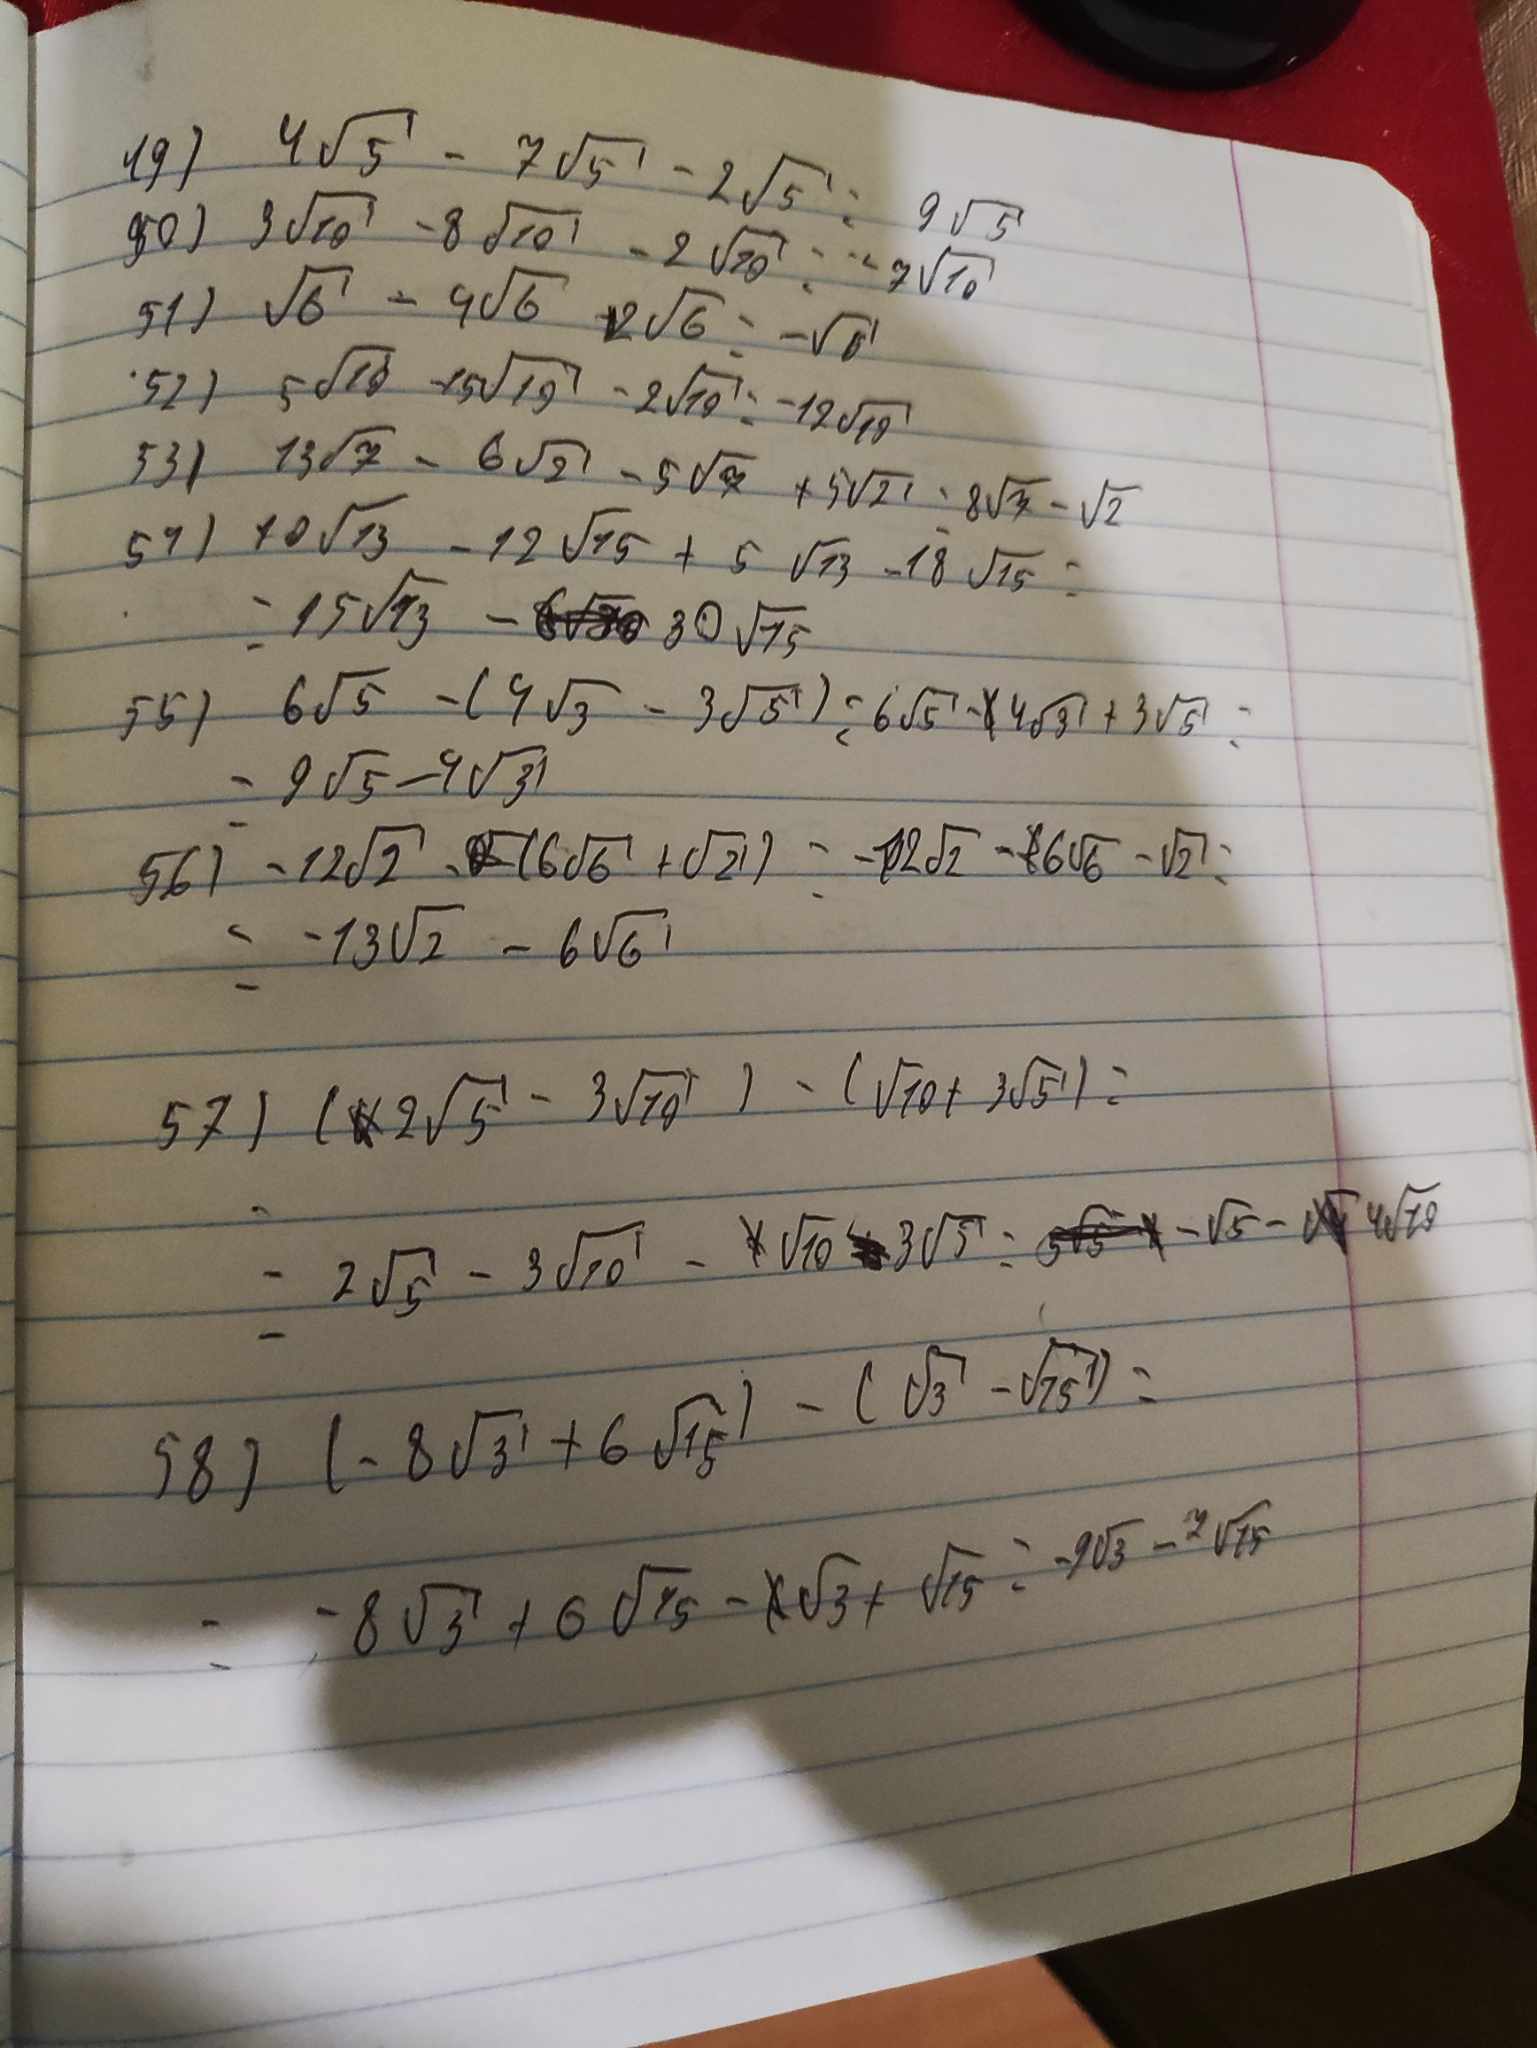 49) 4√5 - 7√5 - 2√5 = 9√5
50) 3√10 - 8√10 - 2√10 = -7√10
51) √6 - 4√6 + 2√6 = -√6
52) 5√10 - 15√10 - 2√10 = -12√10
53) 13√7 - 6√2 - 5√7 + 5√2 = 8√7 - √2
54) 10√13 - 12√15 + 5√13 - 18√15 =
= 15√13 - 30√15
55) 6√5 - (4√3 - 3√5) = 6√5 - 4√3 + 3√5 =
= 9√5 - 4√3
56) -12√2 - (6√6 + √2) = -12√2 - 6√6 - √2 =
= -13√2 - 6√6
57) (2√5 - 3√10) - (√10 + 3√5) =
= 2√5 - 3√10 - √10 - 3√5 = -√5 - 4√10
58) (-8√3 + 6√15) - (√3 - √15) =
= -8√3 + 6√15 - √3 + √15 = -9√3 - 7√15